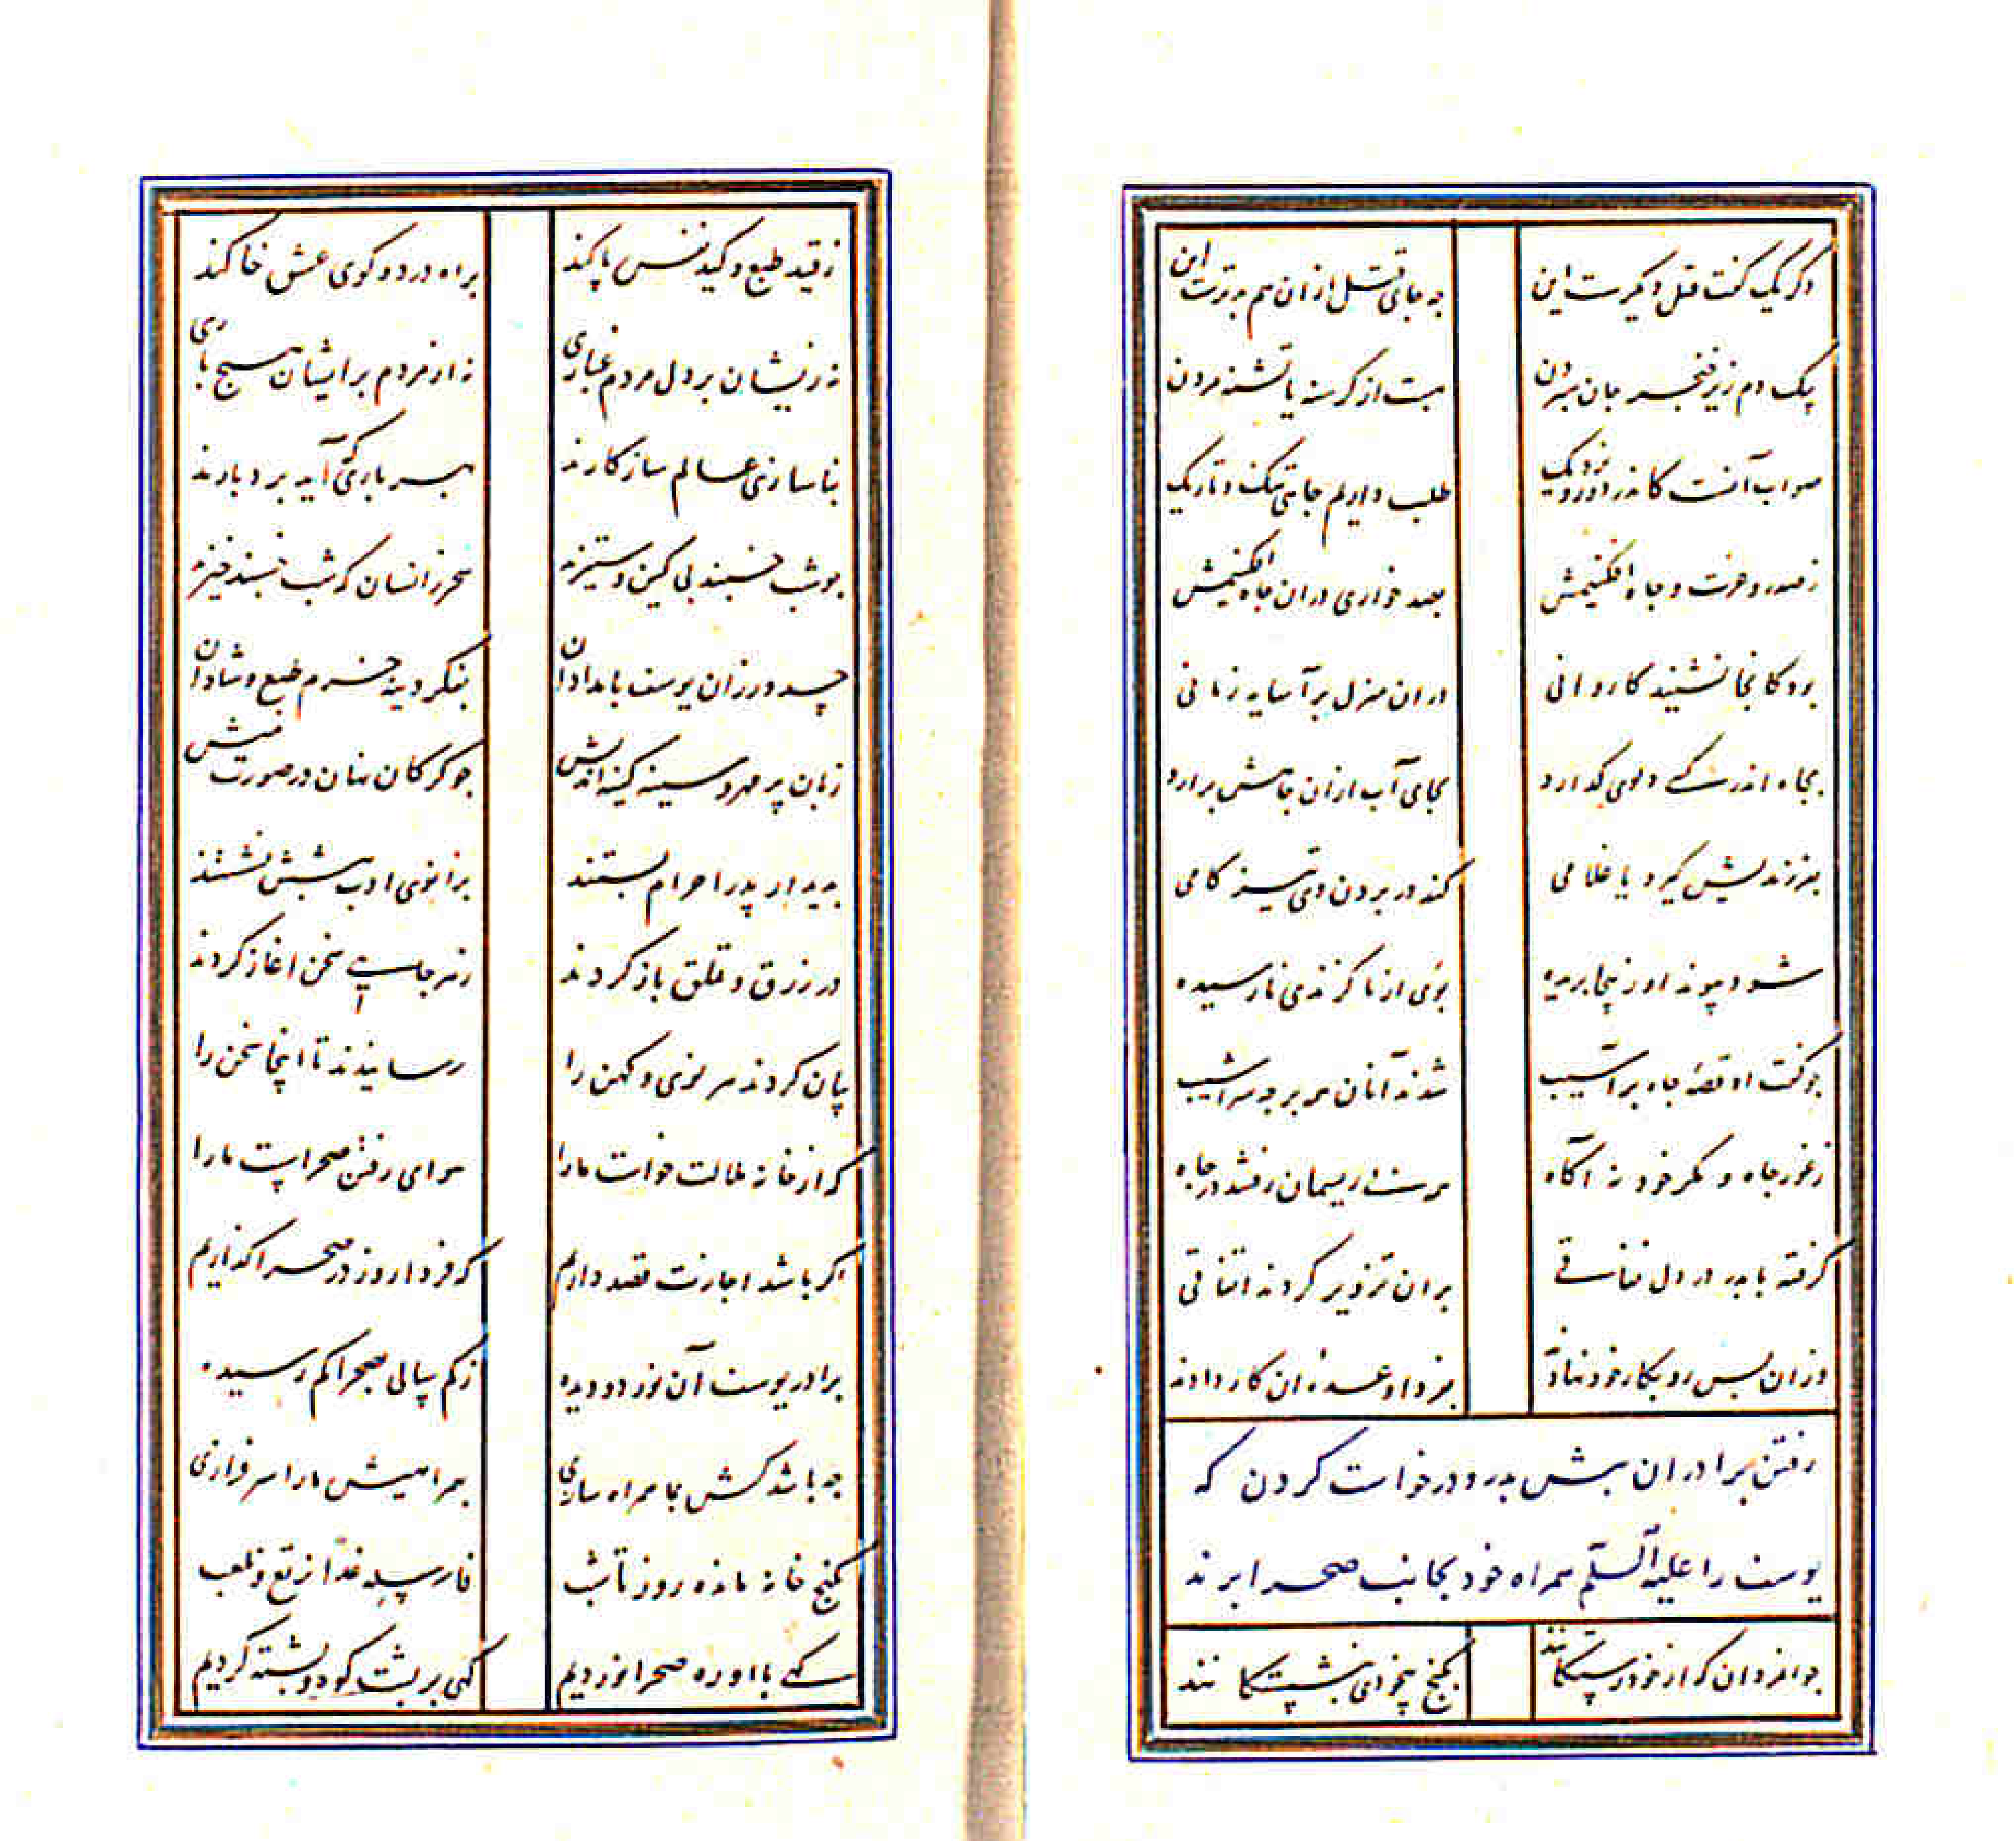 دکر یک کفت قتل دیکرست این به جای قتل ازان هم بدترست این
یک دم زیر خنجر جان سپردن بهست از کرسنه یا تشنه مردن
صواب آنست کاندر دور و نزدیک طلب داریم چاهی تنک و تاریک
ز صدر و عزت و جاه افکنیمش بصد خواری دران چاه افکنیمش
بود کانجا نشیند کاروانی دران منزل بر آساید زمانی
بچاه اندر کسی دلوی کدارد بجای آب ازان چاهش برارد
بفرزندیش کیرد یا غلامی کند در بردن وی تیز کامی
شود پیوند او زینجا بریده بوی از ما کزندی نارسیده
جو کفت او قصهٔ چاه بر آسیب شدند آنان همه بر جه سراشیب
ز غور چاه و مکر خود نه آکاه همه بی ریسمان رفتند در چاه
کرفته با پدر در دل نفاقی بران تزویر کردند اتفاقی
وزان پس رو بکار خود نهادند بفردا وعدهٔ ان کار دادند
رفتن برادران پیش پدر و درخواست کردن که
یوسف را علیه السلام همراه خود بجانب صحرا برند
جوانمردان که از خود رستکانند بکنج بیخودی بنشستکانند
ز قید طبع و کید نفس پاکند براه درد و کوی عشق خاکند
نه زیشان بر دل مردم غباری نه از مردم برایشان هیچ باری
بناسازی عالم سازکارند بهر باری که آید بردبارند
جو شب خسبند بی کین و ستیزند سحر زانسان که شب خسبند خیزند
حسد ورزان یوسف بامدادان بفکر دینه خرم طبع و شادان
زبان پر مهر و سینه کینه اندیش جو کرکان نهان در صورت میش
بدیدار پدر احرام بستند بزانوی ادب پیشش نشستند
در زرق و تملق باز کردند ز هر جایی سخن اغاز کردند
بیان کردند هر نوی و کهن را رسانیدند تا اینجا سخن را
که از خانه ملالت خواست ما را هوای رفتن صحراست ما را
اکر باشد اجازت قصد داریم که فردا روز در صحرا کذاریم
برادر یوسف آن نور دو دیده ز کم سالی بصحرا کم رسیده
چه باشد کش بما همراه سازی بهمراهیش ما را سر فرازی
بکنج خانه مانده روز تا شب فارسله غدا نرتع و نلعب
کهی با او ره صحرا نوردیم کهی بر پشت کوه و پشته کردیم